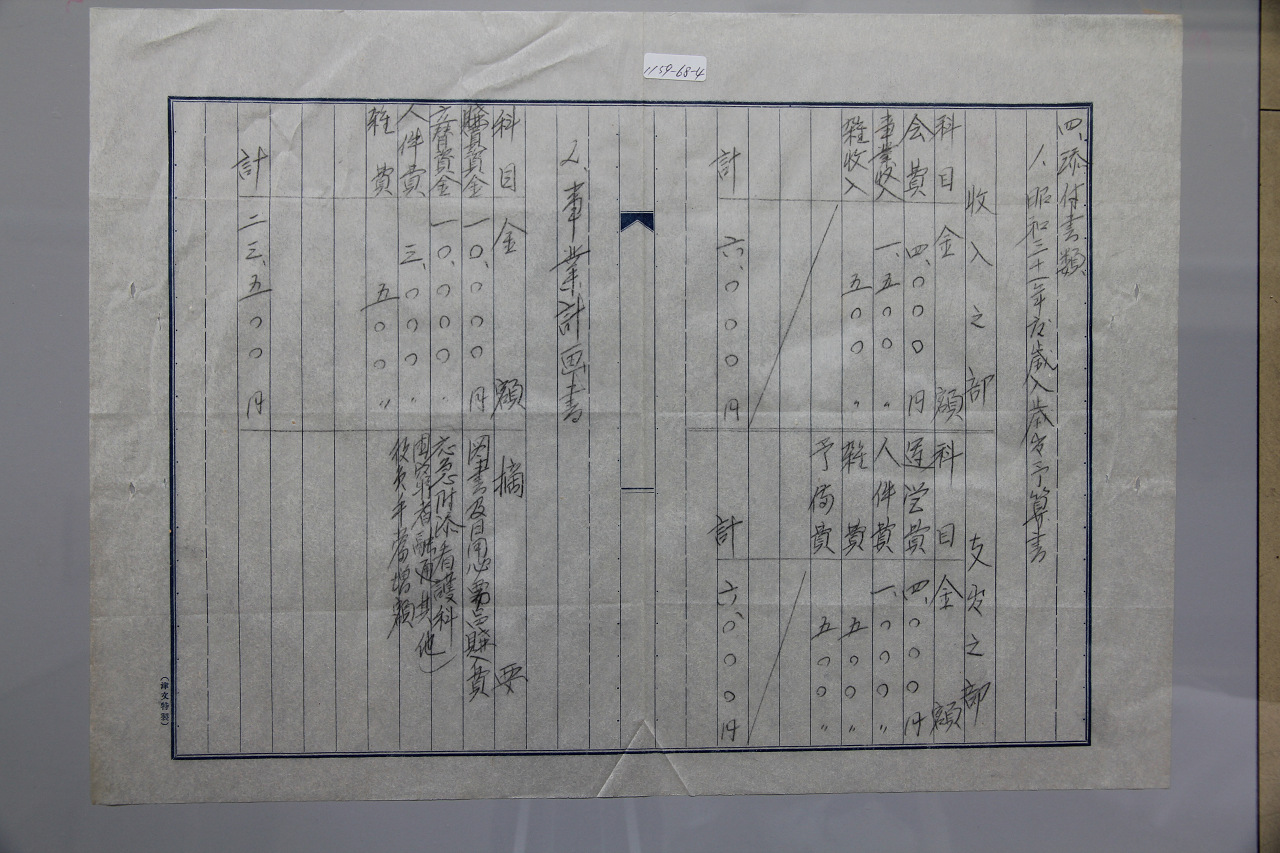 1159-68-4
四、添付書類
1、昭和三十一年度歳入歳出予算書
収入之部
支出之部
科目 金額 科目 金額
会費 四、〇〇〇円 運営費 四、〇〇〇円
事業収入 一、五〇〇〃 人件費 一、〇〇〇〃
雑収入 五〇〇〃 雑費 五〇〇〃
予備費 五〇〇〃
計 六、〇〇〇円 計 六、〇〇〇円
2、事業計画書
科目 金額 摘要
購買資金 一〇、〇〇〇円 図書及日用必需品購入費
立替資金 一〇、〇〇〇〃 応急附添看護料
困窮者融通其他)
人件費 三、〇〇〇〃 役員手当増額
雑費 五〇〇〃
計 二三、五〇〇円